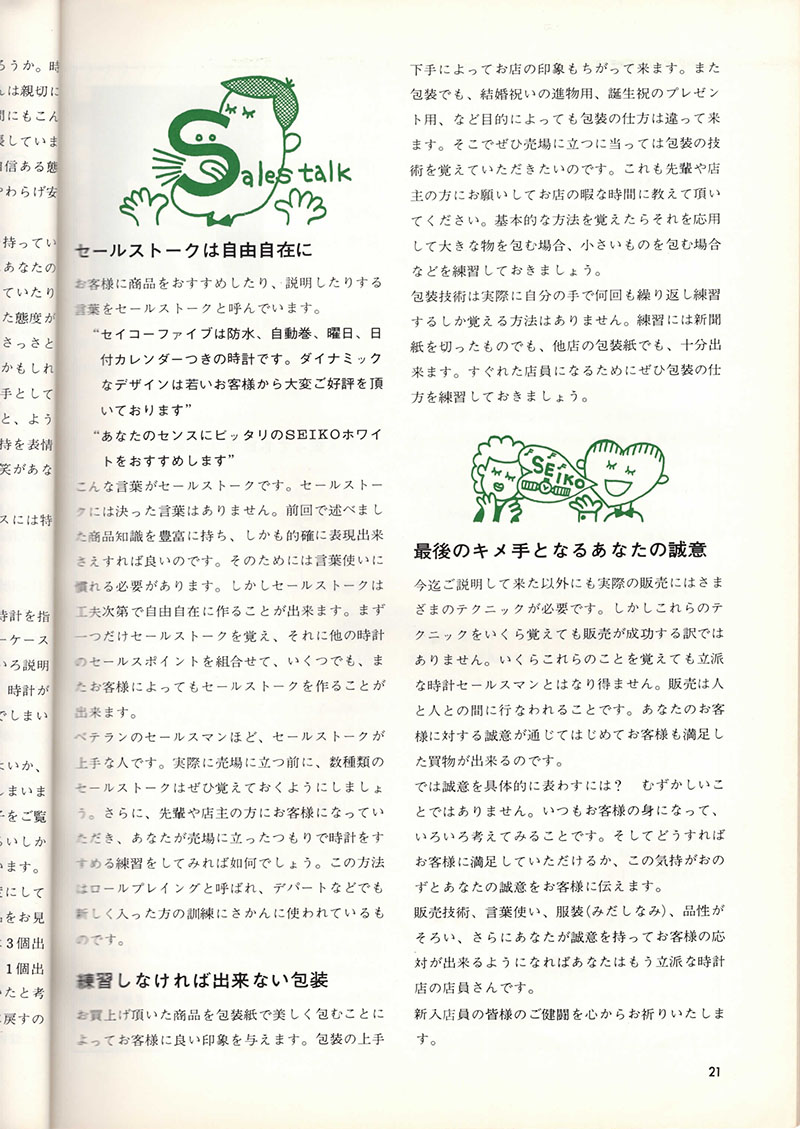 ろうか。時
んは親切に
間にもこん
長していま
自信ある態
やわらげ安
持ってい
あなたの
ていたり
た態度が
さっさと
かもしれ
手として
と、よう
持を表情
笑があな
スには特
時計を指
ーケース
いろ説明
時計が
でしまい
よいか、
しまいま
子をご覧
るいしか
います。
度にして
品をお見
は3個出
1個出
いたと考
に戻すの
Sales talk
セールストークは自由自在に
お客様に商品をおすすめしたり、説明したりする
言葉をセールストークと呼んでいます。
“セイコーファイブは防水、自動巻、曜日、日
付カレンダーつきの時計です。ダイナミック
なデザインは若いお客様から大変ご好評を頂
いております”
“あなたのセンスにピッタリのSEIKOホワイ
トをおすすめします”
こんな言葉がセールストークです。セールストー
クには決った言葉はありません。前回で述べまし
た商品知識を豊富に持ち、しかも的確に表現出来
さえすれば良いのです。そのためには言葉使いに
慣れる必要があります。しかしセールストークは
工夫次第で自由自在に作ることが出来ます。まず
一つだけセールストークを覚え、それに他の時計
のセールスポイントを組合せて、いくつでも、ま
たお客様によってもセールストークを作ることが
出来ます。
ベテランのセールスマンほど、セールストークが
上手な人です。実際に売場に立つ前に、数種類の
セールストークはぜひ覚えておくようにしましょ
う。さらに、先輩や店主の方にお客様になってい
ただき、あなたが売場に立ったつもりで時計をす
すめる練習をしてみれば如何でしょう。この方法
はロールプレイングと呼ばれ、デパートなどでも
新しく入った方の訓練にさかんに使われているも
のです。
練習しなければ出来ない包装
お買上げ頂いた商品を包装紙で美しく包むことに
よってお客様に良い印象を与えます。包装の上手
下手によってお店の印象もちがって来ます。また
包装でも、結婚祝いの進物用、誕生祝のプレゼン
ト用、など目的によっても包装の仕方は違って来
ます。そこでぜひ売場に立つに当っては包装の技
術を覚えていただきたいのです。これも先輩や店
主の方にお願いしてお店の暇な時間に教えて頂い
てください。基本的な方法を覚えたらそれを応用
して大きな物を包む場合、小さいものを包む場合
などを練習しておきましょう。
包装技術は実際に自分の手で何回も繰り返し練習
するしか覚える方法はありません。練習には新聞
紙を切ったものでも、他店の包装紙でも、十分出
来ます。すぐれた店員になるためにぜひ包装の仕
方を練習しておきましょう。
SEIKO
最後のキメ手となるあなたの誠意
今迄ご説明して来た以外にも実際の販売にはさま
ざまのテクニックが必要です。しかしこれらのテ
クニックをいくら覚えても販売が成功する訳では
ありません。いくらこれらのことを覚えても立派
な時計セールスマンとはなり得ません。販売は人
と人との間に行なわれることです。あなたのお客
様に対する誠意が通じてはじめてお客様も満足し
た買物が出来るのです。
では誠意を具体的に表わすには？　むずかしいこ
とではありません。いつもお客様の身になって、
いろいろ考えてみることです。そしてどうすれば
お客様に満足していただけるか、この気持がおの
ずとあなたの誠意をお客様に伝えます。
販売技術、言葉使い、服装(みだしなみ)、品性が
そろい、さらにあなたが誠意を持ってお客様の応
対が出来るようになればあなたはもう立派な時計
店の店員さんです。
新入店員の皆様のご健闘を心からお祈りいたしま
す。
21